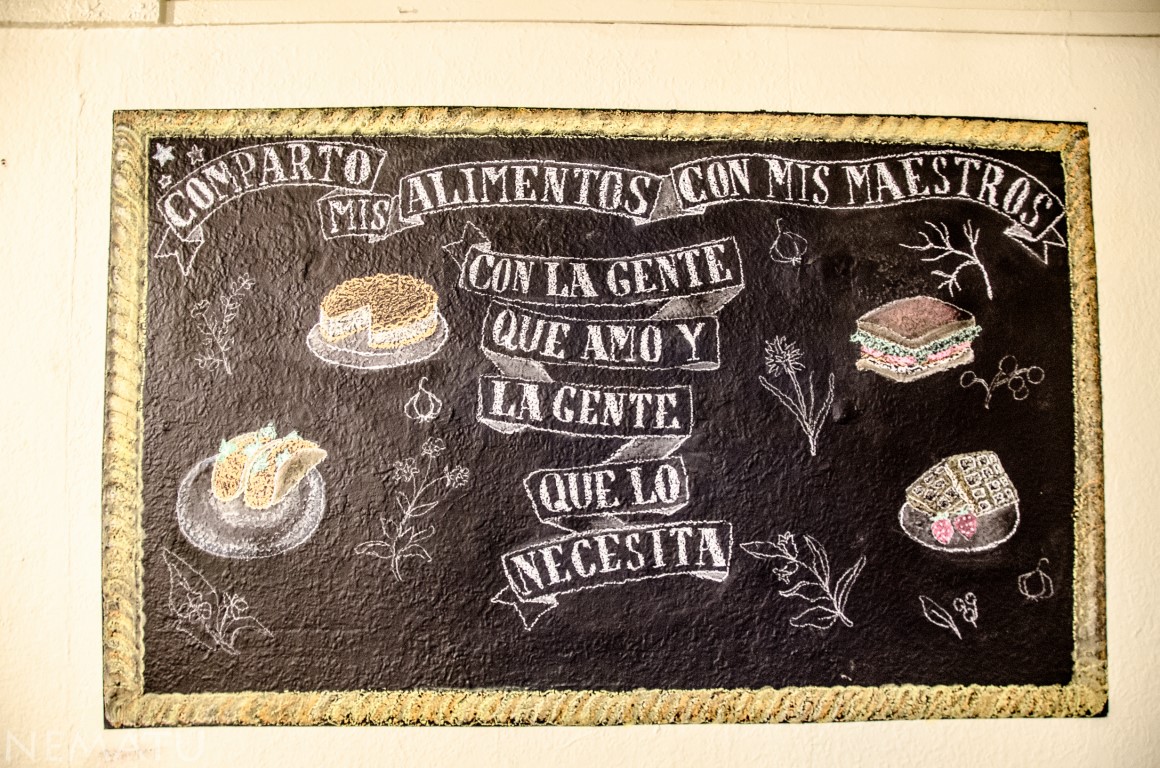 COMPARTO MIS ALIMENTOS CON MIS MAESTROS
CON LA GENTE
QUE AMO Y
LA GENTE
QUE LO
NECESITA